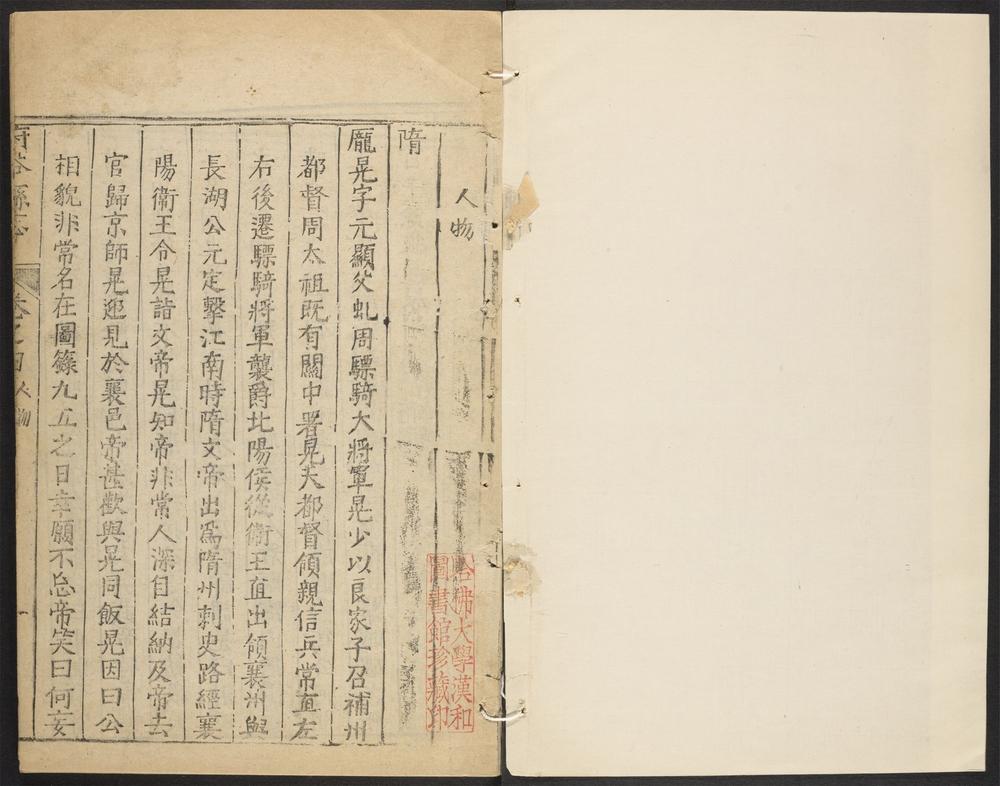 人物
隋
龐晃字元顯父虬周驃騎大將軍晃少以良家子召補州
都督周太祖既有關中署晃大都督領親信兵常直左
右後遷驃騎將軍襲爵比陽侯從衞王直出領襄州與
長湖公元定擊江南時隋文帝出爲隋州刺史路經襄
陽衞王令晃詣文帝晃知帝非常人深自結納及帝去
官歸京師晃迎見於襄邑帝甚歡與晃同飯晃因曰公
相貌非常名在圖籙九五之日幸願不忘帝笑曰何妄
縣志 卷之四 人物 一
哈佛大學漢和
圖書館珍藏印